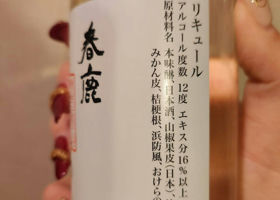 リキュール
アルコール度数 12度 エキス分16%以上
原材料名 本味醂、日本酒、山椒果皮(日本)、
みかん皮、桔梗根、浜防風、おけらの
春鹿